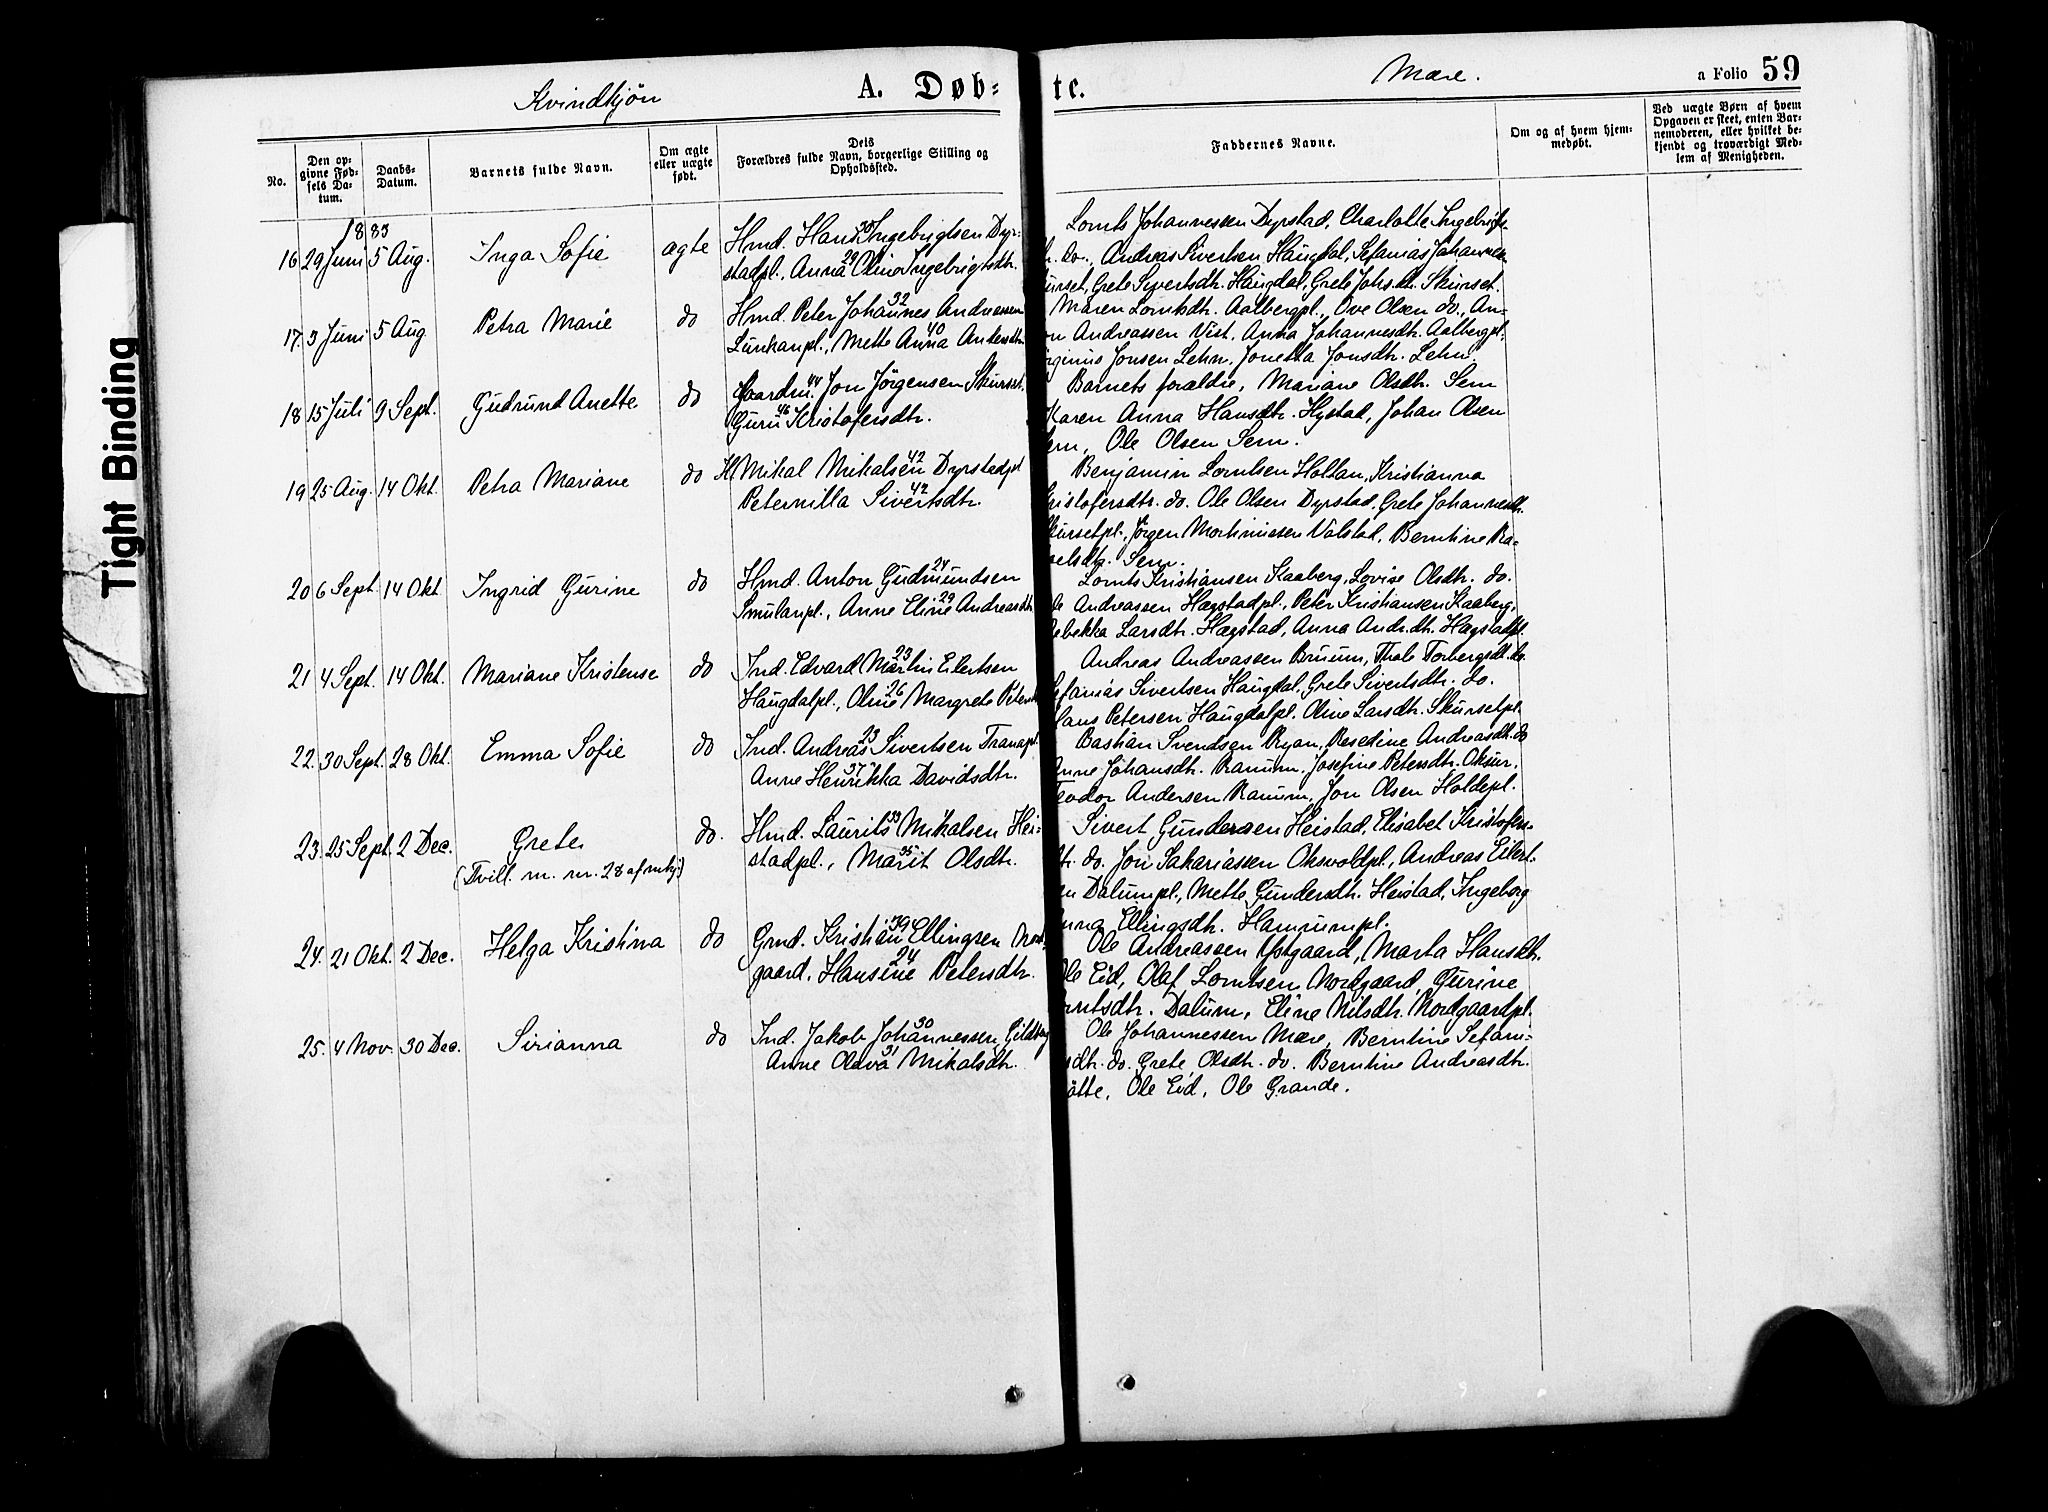 Tight Binding
Kvindkjön
A. Døb-
te.
Mære.
a Folio 59
No.
Den op-
givne Fød-
sels Da-
tum.
Daabs-
Datum.
Barnets fulde Navn.
Om ægte
eller uægte
født.
Dets
Forældres fulde Navn, borgerlige Stilling og
Opholdssted.
Faddernes Navne.
Om og af hvem hjem-
medøbt.
Ved uægte Børn af hvem
Opgaven er skeet, enten Bar-
nemoderen, eller hvilket be-
kjendt og troværdigt Med-
lem af Menigheden.
1883
16 29 Juni 5 Aug. Inga Sofie ægte
Hmd. Hans Ingebrigtsen Dyr-
stadpl., Anna Oline Ingebrigtsdtr. 29
Lornts Johannessen Dyrstad, Charlotte Ingebrigts-
do., Andreas Sivertsen Haugdal, Sefanias Johannes-
Grete Sivertsdtr. Haugdal, Grete Johs.dt. Skurset.
17. 3 Juni 5 Aug Petra Marie do
Hmd. Peter Johannes Andreassen 32
Lunkanpl., Mette Anna Andersdtr. 40
Maren Lorntsdtr. Aalbergpl., Ove Olsen do., An-
Andreassen Vist, Anna Johannesdtr. Aalbergpl.
Jonsen Lehn, Jonetta Jonsdtr. Lehn.
18 15 Juli 9 Sept. Gudrund Anette do
Gaardm. Jon Jörgensen Skurset. 44
Guru Kristofersdtr. 46
Barnets forældre, Mariane Olsdtr. Sem
Karen Anna Hansdtr. Hystad, Johan Olsen
Ole Olsen Sem.
19 25 Aug. 14 Okt. Petra Mariane do
H. Mikal Mikalsen Dyrstadpl 42
Peternilla Sivertsdtr. 42
Benjamin Lorntsen Holtan, Kristianna
Kristofersdtr. do. Ole Olsen Dyrstad, Grete Johannesdtr.
Skursetpl., Jörgen Martinussen Valstad, Berntine Ra-
Sem.
20 6 Sept. 14 Okt Ingrid Gurine do
Hmd. Anton Gudmundsen 24
Smulanpl., Anne Eline Andreasdtr. 29
Lornts Kristiansen Kaaberg, Lovise Olsdtr. do.
Ole Andreassen Hægstadpl., Peter Kristiansen Kaaberg,
Rebekka Larsdtr. Hægstad, Anna Andr.dtr. Hægstadpl.
21 4 Sept. 14 Okt. Mariane Kristense do
Ind. Edvard Martin Eilertsen 23
Haugdalpl., Oline Margrete Petersdtr. 26
Andreas Andreassen Bruum, Thale Torbergsdt. do.
Sefanias Sivertsen Haugdal, Grete Sivertsdtr. do.
Hans Petersen Haugdalpl. Oline Larsdtr. Skursetpl.
22. 30 Sept. 28 Okt. Emma Sofie do
Ind. Andreas Sivertsen Tranapl. 23
Anne Henrikka Davidsdtr. 37
Bastian Svendsen Ryan, Resedine Andreasdt. do
Anne Johansdtr. Ranum, Josefine Petersdtr. Oksur,
Teodor Andersen Ranum, Jon Olsen Holdepl.
23. 25 Sept. 2 Dec. Grete do.
(Tvill. m. nr. 28 af mkj.)
Hmd. Laurits Mikalsen Hei- 33
stadpl., Marit Olsdtr. 35
Sivert Gundersen Heistad, Elisabet Kristofers-
do. Jon Sakariassen Oksvoldpl., Andreas Eilert-
Dalumpl., Mette Gundersdtr. Heistad, Ingeborg
Anna Ellingsdtr. Hamrumpl.
24. 21 Okt. 2 Dec. Helga Kristina do
Grmd. Kristian Ellingsen Nord- 39
gaard, Hansine Petersdtr. 24
Ole Andreassen Ystgaard, Marta Hansdtr.
Ole Eid, Olaf Lorntsen Nordgaard, Gurine
Lorntsdtr. Dalum, Eline Nilsdtr. Nordgaardpl.
25. 4 Nov. 30 Dec. Sirianna do
Ind. Jakob Johannessen Gildberg 30
Anne Olava Mikalsdtr. 31
Ole Johannessen Mære, Berntine Sefani-
asdtr. do. Grete Olsdtr. do. Berntine Andreasdtr.
Ole Eid, Ole Grande.